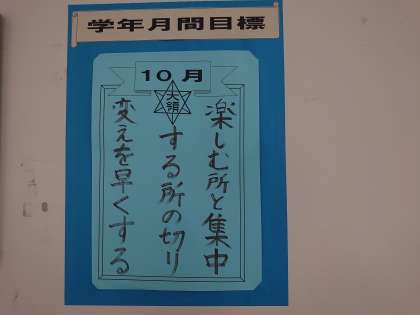 学年月間目標
10月
大領
楽しむ所と集中
する所の切り
変えを早くする